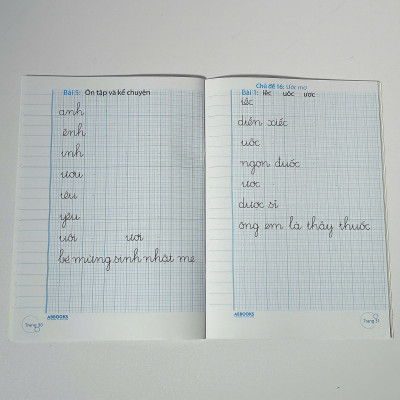 Bài 5: Ôn tập và kể chuyện
anh
ênh
inh
ươu
iêu
yêu
uôi ươi
bé mừng sinh nhật mẹ
ABBOOKS
Trang 30
Chủ đề 16: Ước mơ
Bài 1: iêc uôc ươc
iêc
diễn xiếc
uôc
ngọn đuốc
ươc
dược sĩ
ông em là thầy thuốc
ABBOOKS
Trang 31